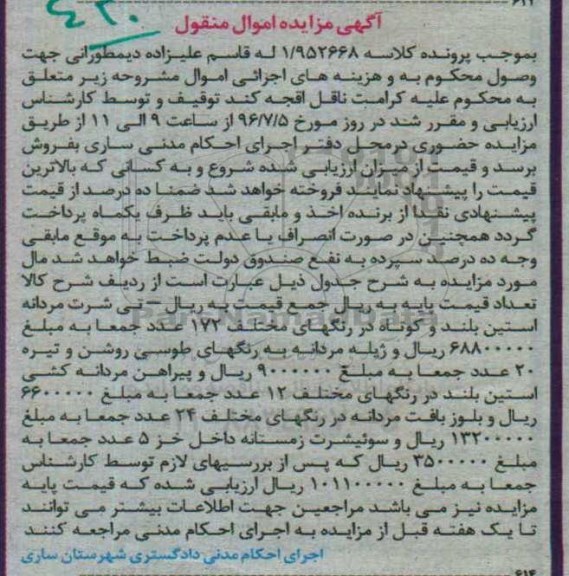 ۶۱۲
۴۳۰
آگهی مزایده اموال منقول
بموجب پرونده کلاسه ۱/۹۵۲۶۶۸ له قاسم علیزاده دیمطورانی جهت
وصول محکوم به و هزینه های اجرائی اموال مشروحه زیر متعلق
به محکوم علیه کرامت ناقل اقجه کند توقیف و توسط کارشناس
ارزیابی و مقرر شد در روز مورخ ۹۶/۷/۵ از ساعت ۹ الی ۱۱ از طریق
مزایده حضوری درمحل دفتر اجرای احکام مدنی ساری بفروش
برسد و قیمت از میزان ارزیابی شده شروع و به کسانی که بالاترین
قیمت را پیشنهاد نمایند فروخته خواهد شد ضمنا ده درصد از قیمت
پیشنهادی نقدا از برنده اخذ و مابقی باید ظرف یکماه پرداخت
گردد همچنین در صورت انصراف یا عدم پرداخت به موقع مابقی
وجه ده درصد سپرده به نفع صندوق دولت ضبط خواهد شد مال
مورد مزایده به شرح جدول ذیل عبارت است از ردیف شرح کالا
تعداد قیمت پایه به ریال جمع قیمت به ریال – تی شرت مردانه
استین بلند و کوتاه در رنگهای مختلف ۱۷۲ عدد جمعا به مبلغ
۶۸۸۰۰۰۰۰ ریال و ژیله مردانه به رنگهای طوسی روشن و تیره
۲۰ عدد جمعا به مبلغ ۹۰۰۰۰۰۰ ریال و پیراهن مردانه کشی
استین بلند در رنگهای مختلف ۱۲ عدد جمعا به مبلغ ۶۶۰۰۰۰۰
ریال و بلوز بافت مردانه در رنگهای مختلف ۲۴ عدد جمعا به مبلغ
۱۳۲۰۰۰۰۰ ریال و سوئیشرت زمستانه داخل خز ۵ عدد جمعا به
مبلغ ۳۵۰۰۰۰۰ ریال که پس از بررسیهای لازم توسط کارشناس
جمعا به مبلغ ۱۰۱۱۰۰۰۰۰ ریال ارزیابی شده که قیمت پایه
مزایده نیز می باشد مراجعین جهت اطلاعات بیشتر می توانند
تا یک هفته قبل از مزایده به اجرای احکام مدنی مراجعه کنند
اجرای احکام مدنی دادگستری شهرستان ساری
۶۱۴